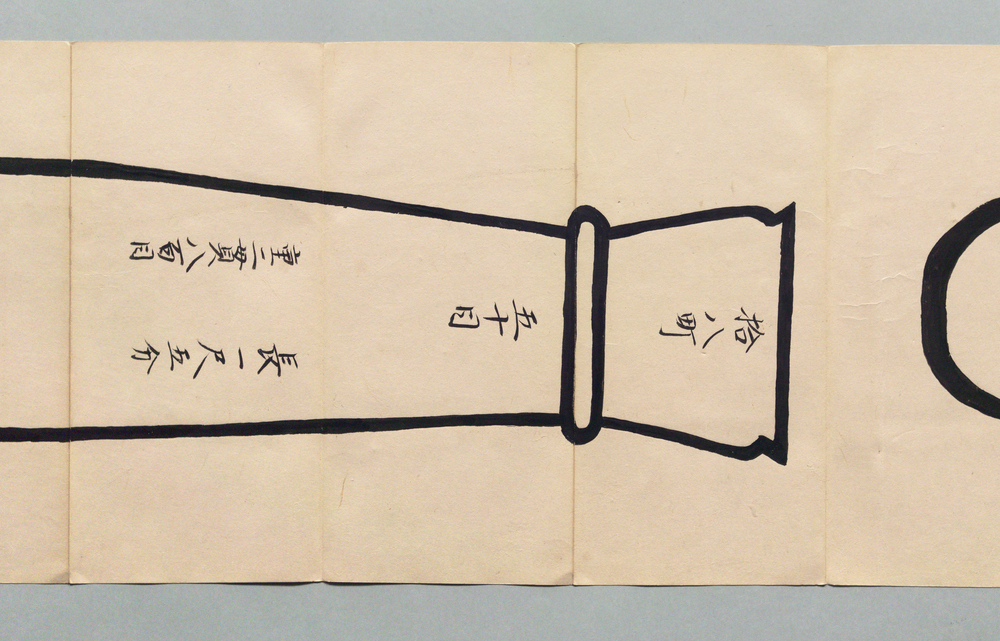 拾八町
五十目
重二貫八百目
長一尺五分